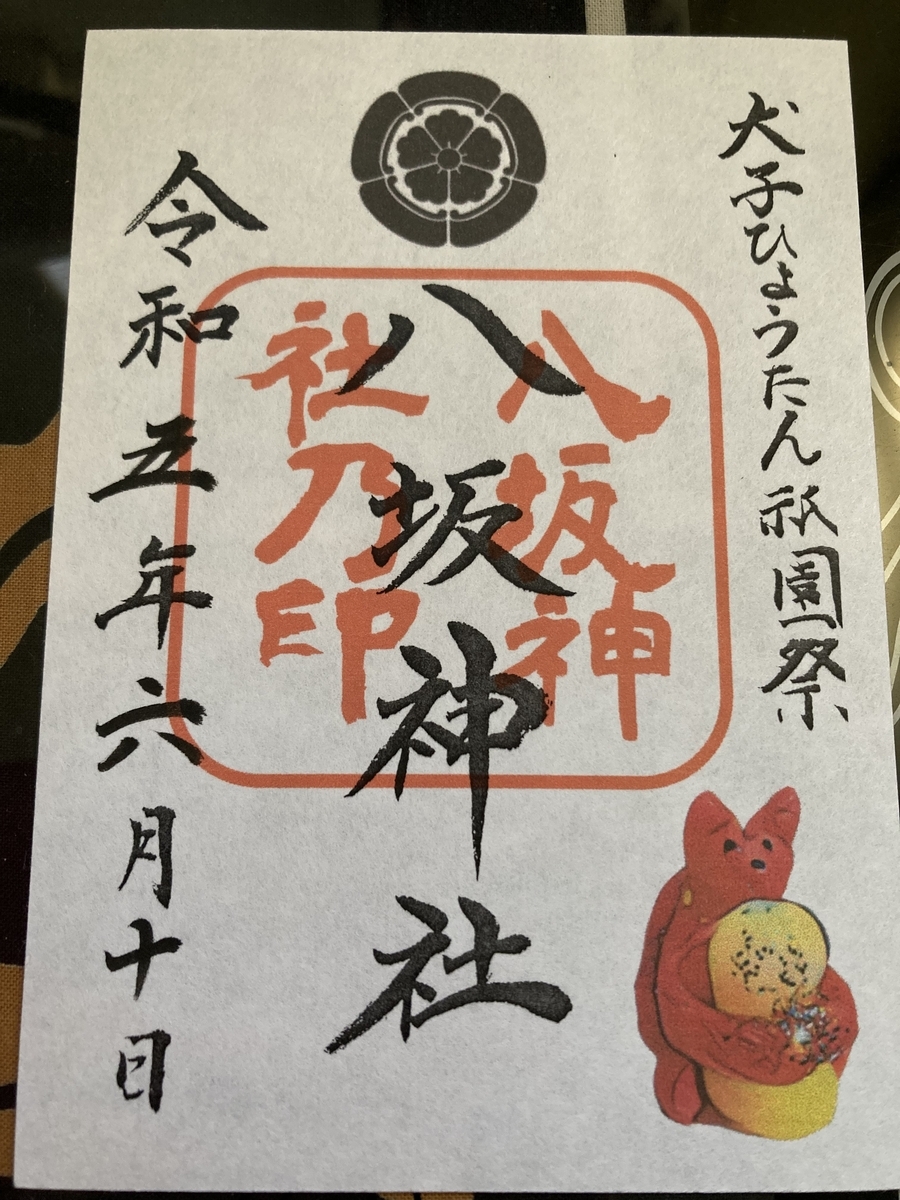 犬子ひょうたん祇園祭
八坂神社
八坂神
社乃印
令和五年六月十日